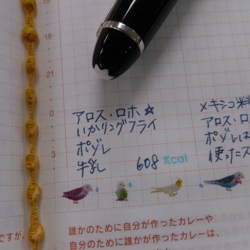 アロス・ロホ☆
いかリングフライ
ポゾレ
牛乳 608 kcal
メキシコ料
アロス・ロ
ポゾレは
使ったス
3
ですが、
誰かのために自分が作ったカレーや
自分のために誰かが作ったカレー